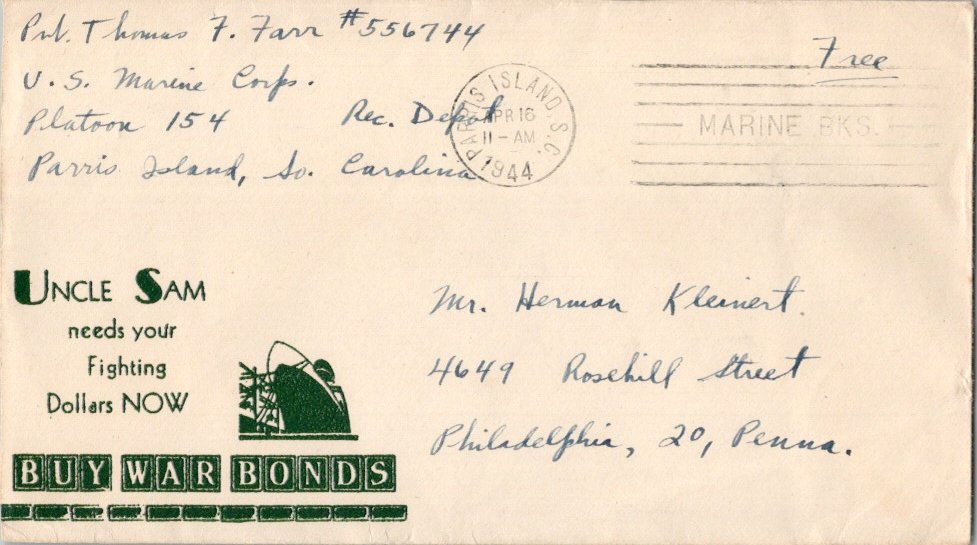 Pvt. Thomas F. Farr #556744
U.S. Marine Corps.
Platoon 154 Rec. Depot
Parris Island, So. Carolina
PARRIS ISLAND, S.C.
APR 16
11-AM
1944
Free
MARINE BKS.
UNCLE SAM
needs your
Fighting
Dollars NOW
BUY WAR BONDS
Mr. Herman Kleinert.
4649 Rosehill Street
Philadelphia, 20, Penna.